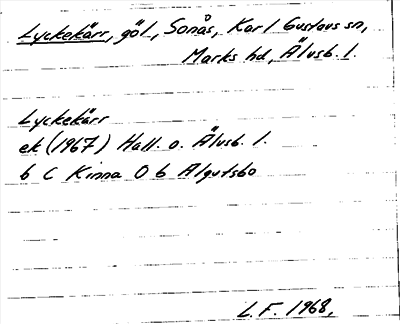 Lyckekärr, göl, Sonås, Karl Gustavs sn,
Marks hd, Älvsb. l.
Lyckekärr
ek (1967) Hall. o. Älvsb. l.
6 C Kinna O b Algutsbo
L.F. 1968.